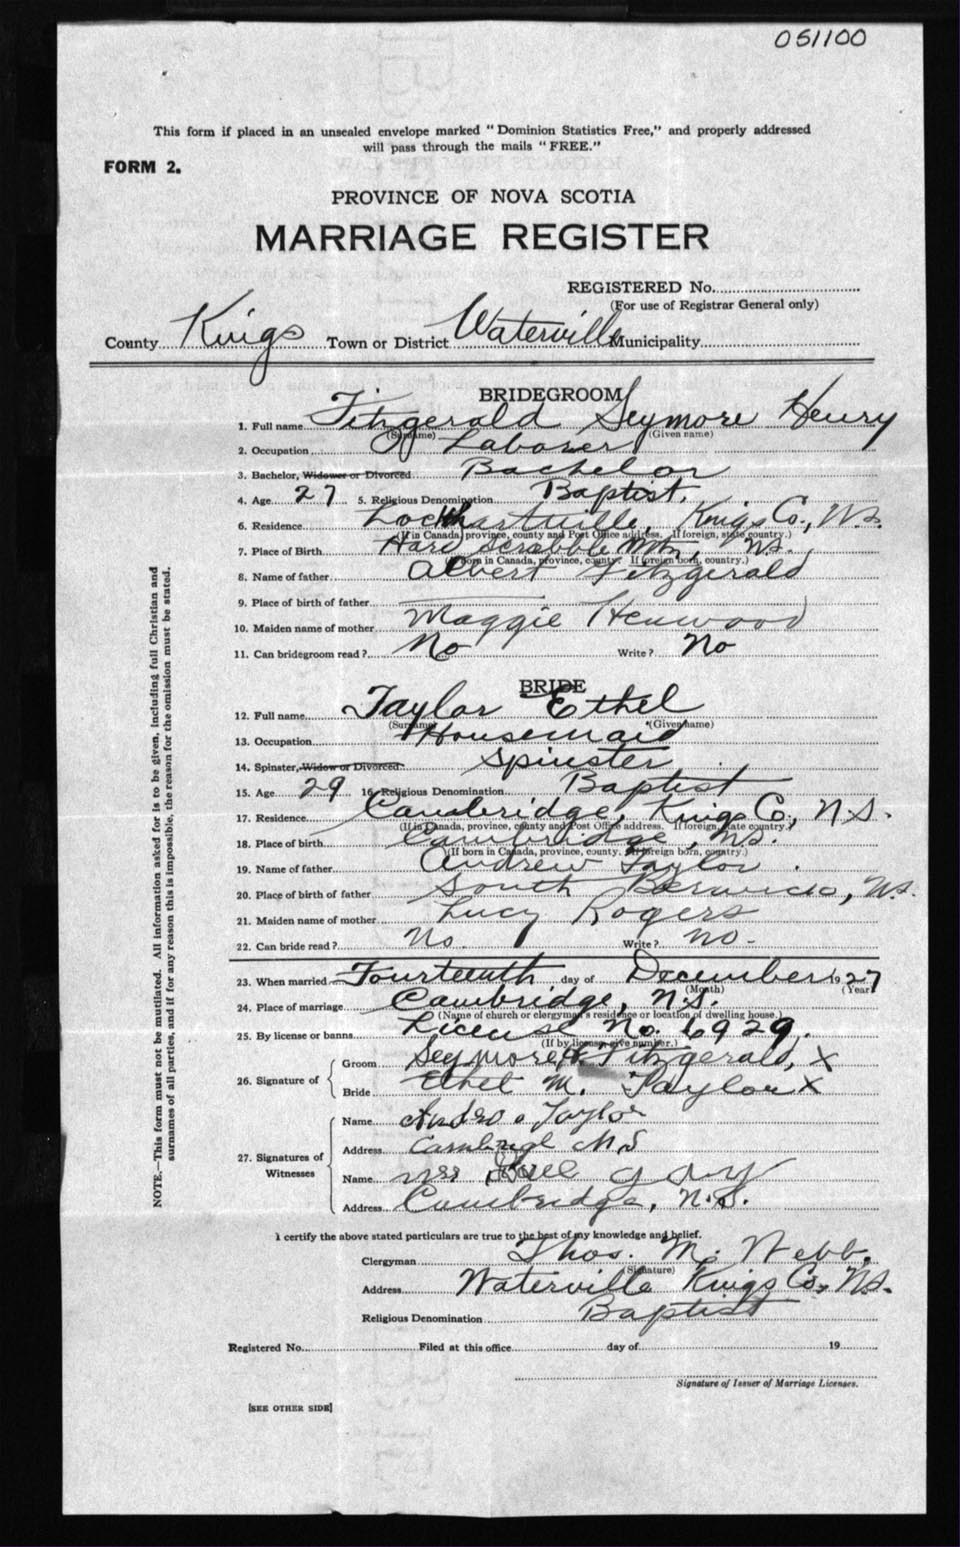 051100
This form if placed in an unsealed envelope marked "Dominion Statistics Free," and properly addressed
will pass through the mails "FREE."
FORM 2.
PROVINCE OF NOVA SCOTIA
MARRIAGE REGISTER
REGISTERED No.
(For use of Registrar General only)
County Kings Town or District Waterville Municipality
BRIDEGROOM
1. Full name Fitzgerald Seymore Henry
(Surname) (Given name)
2. Occupation Laborer
3. Bachelor, Widower or Divorced Bachelor
4. Age 27 5. Religious Denomination Baptist.
6. Residence Lockhartville, Kings Co., N.S.
(If in Canada, province, county and Post Office address. If foreign, state country.)
7. Place of Birth Hard Scrabble Mtn, N.S.
(If born in Canada, province, county. If foreign born, country.)
8. Name of father Albert Fitzgerald
9. Place of birth of father
10. Maiden name of mother Maggie Henwood
11. Can bridegroom read? No Write? No
BRIDE
12. Full name Taylor Ethel
(Surname) (Given name)
13. Occupation Housemaid
14. Spinster, Widow or Divorced Spinster
15. Age 29 16. Religious Denomination Baptist
17. Residence Cambridge, Kings Co., N.S.
(If in Canada, province, county and Post Office address. If foreign, state country.)
18. Place of birth Cambridge, N.S.
(If born in Canada, province, county. If foreign born, country.)
19. Name of father Andrew Taylor
20. Place of birth of father South Berwick, N.S.
21. Maiden name of mother Lucy Rogers
22. Can bride read? No. Write? No.
23. When married Fourteenth day of December 1927
(Month) (Year)
24. Place of marriage Cambridge, N.S.
(Name of church or clergyman's residence or location of dwelling house.)
25. By license or banns License No. 6929.
(If by license give number.)
26. Signature of
Groom Seymore Fitzgerald, X
Bride Ethel M. Taylor X
27. Signatures of Witnesses
Name Taylor
Address N S
Name Mrs Gay
Address Cambridge, N.S.
I certify the above stated particulars are true to the best of my knowledge and belief.
Clergyman Thos. M. Webb.
(Signature)
Address Waterville Kings Co., N.S.
Religious Denomination Baptist
Registered No. Filed at this office day of 19
Signature of Issuer of Marriage Licenses.
[SEE OTHER SIDE]
NOTE.—This form must not be mutilated. All information asked for is to be given, including full Christian and
surnames of all parties, and if for any reason this is impossible, the reason for the omission must be stated.